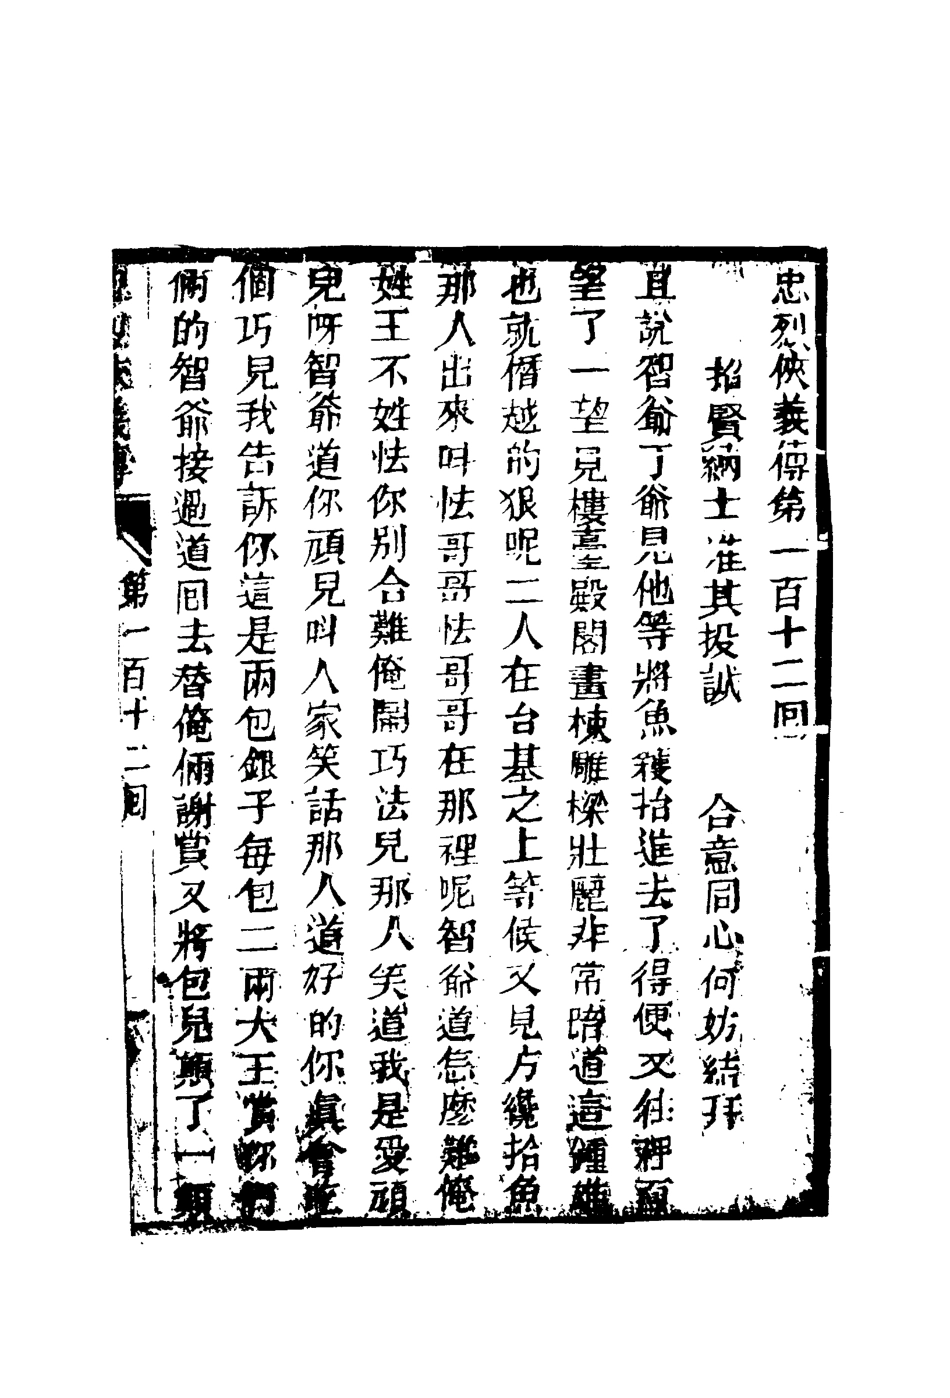 忠烈俠義傳第一百十二回
招賢納士准其投誠　合意同心何妨結拜
且說智爺丁爺見他等將魚簍抬進去了得便又往裡面
望了一望見樓臺殿閣畫棟雕樑壯麗非常暗道這鍾雄
也就僭越的狠呢二人在台基之上等候又見方纔抬魚
那人出來叫怯哥哥怯哥哥在那裡呢智爺道怎麽難俺
姓王不姓怯你別合難俺鬧巧法兒那人笑道我是愛頑
兒呀智爺道你頑兒叫人家笑話那人道好的你真會
個巧兒我告訴你這是兩包銀子每包二兩大王賞你們
倆的智爺接過道回去替俺倆謝賞又將包兒顛了一顛
忠烈俠義傳　第一百十二回